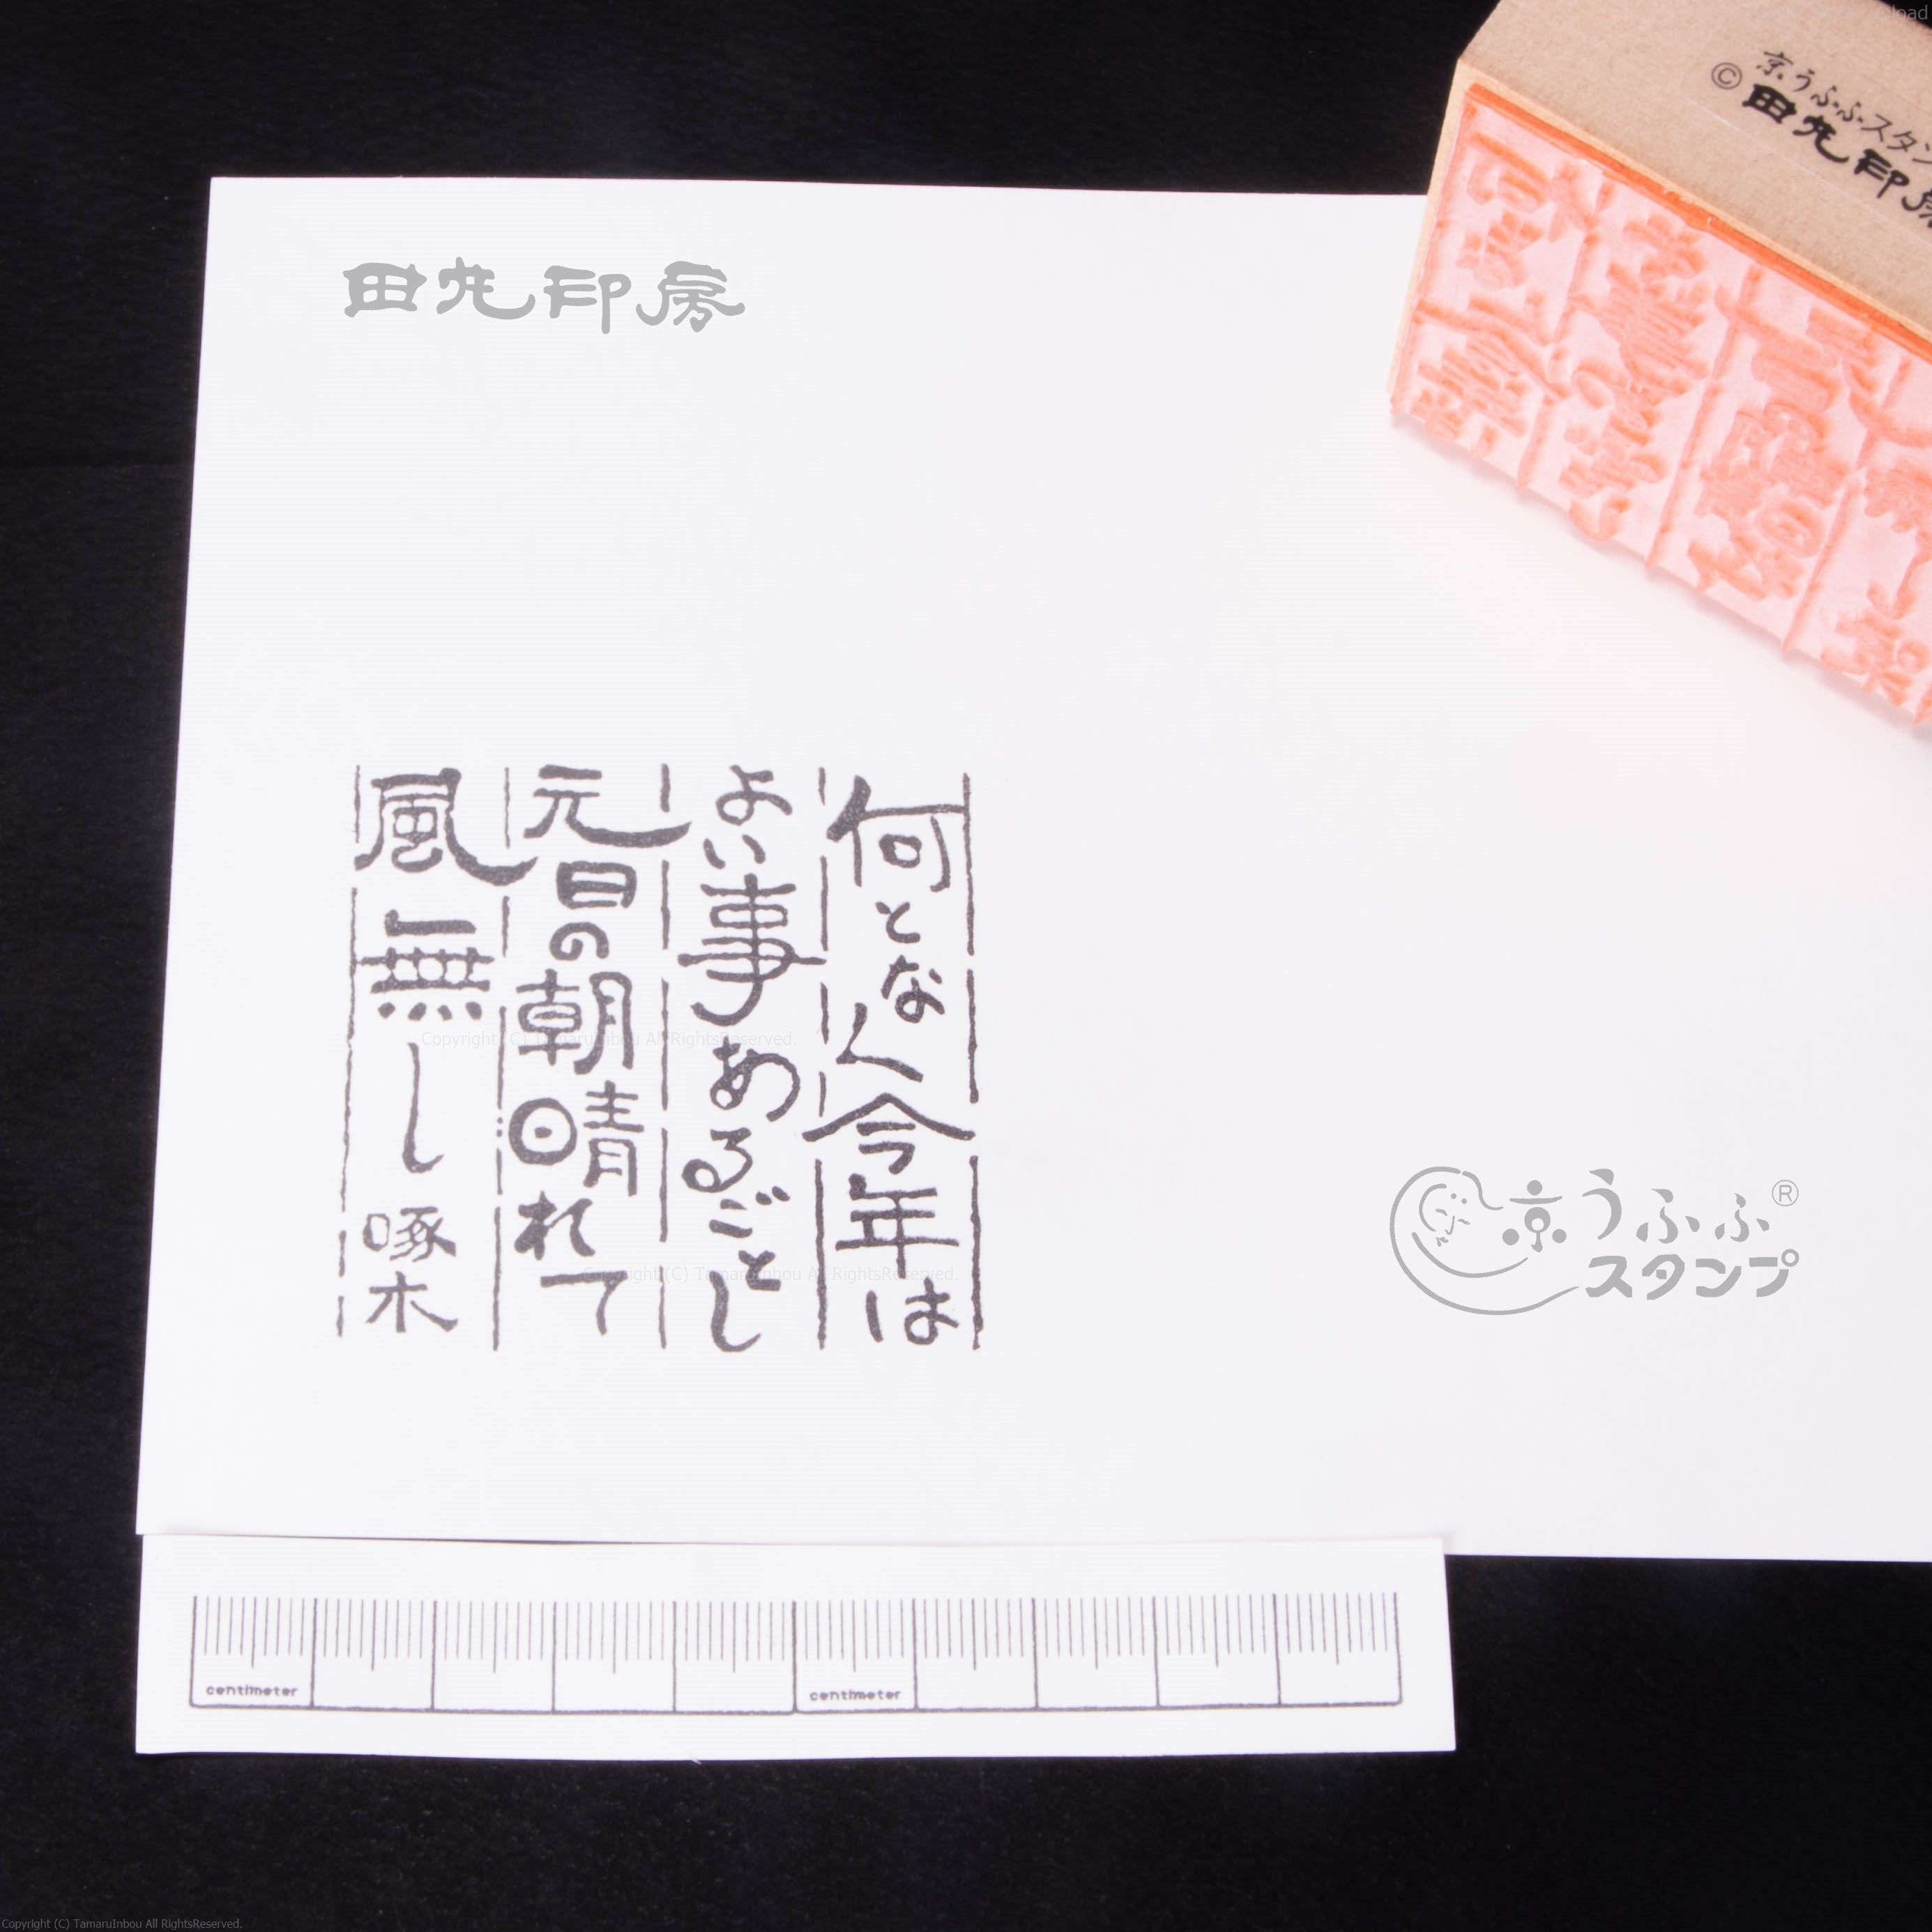 京うふふスタン
© 田丸印房
田丸印房
何となく今年は
よい事あるごとし
元日の朝晴れて
風無し 啄木
Copyright (C) TamaruInbou All RightsReserved.
Copyright (C) TamaruInbou All RightsReserved.
京うふふ®
スタンプ
centimeter centimeter
Copyright (C) TamaruInbou All RightsReserved.